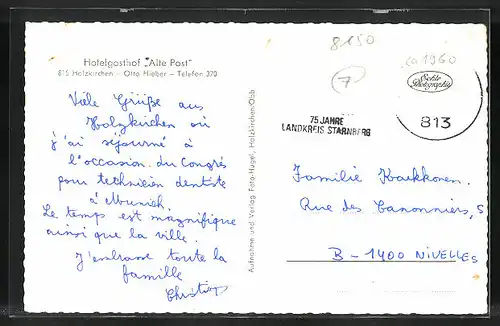 Hotelgasthof "Alte Post"
815 Holzkirchen — Otto Hieber — Telefon 270
Viele Grüße aus
Holzkirchen où
j'ai séjourné à
l'occasion du Congrès
pour technicien dentiste
à Munich.
Le temps est magnifique
ainsi que la ville.
J'embrasse toute la
famille
Aufnahme und Verlag: Foto-Nagel, Holzkirchen/Obb
8150
7
ca 1960
Echte
Photographie
813
75 JAHRE
LANDKREIS STARNBERG
Familie
Rue des Canonniers, 5
B - 1400 NIVELLES